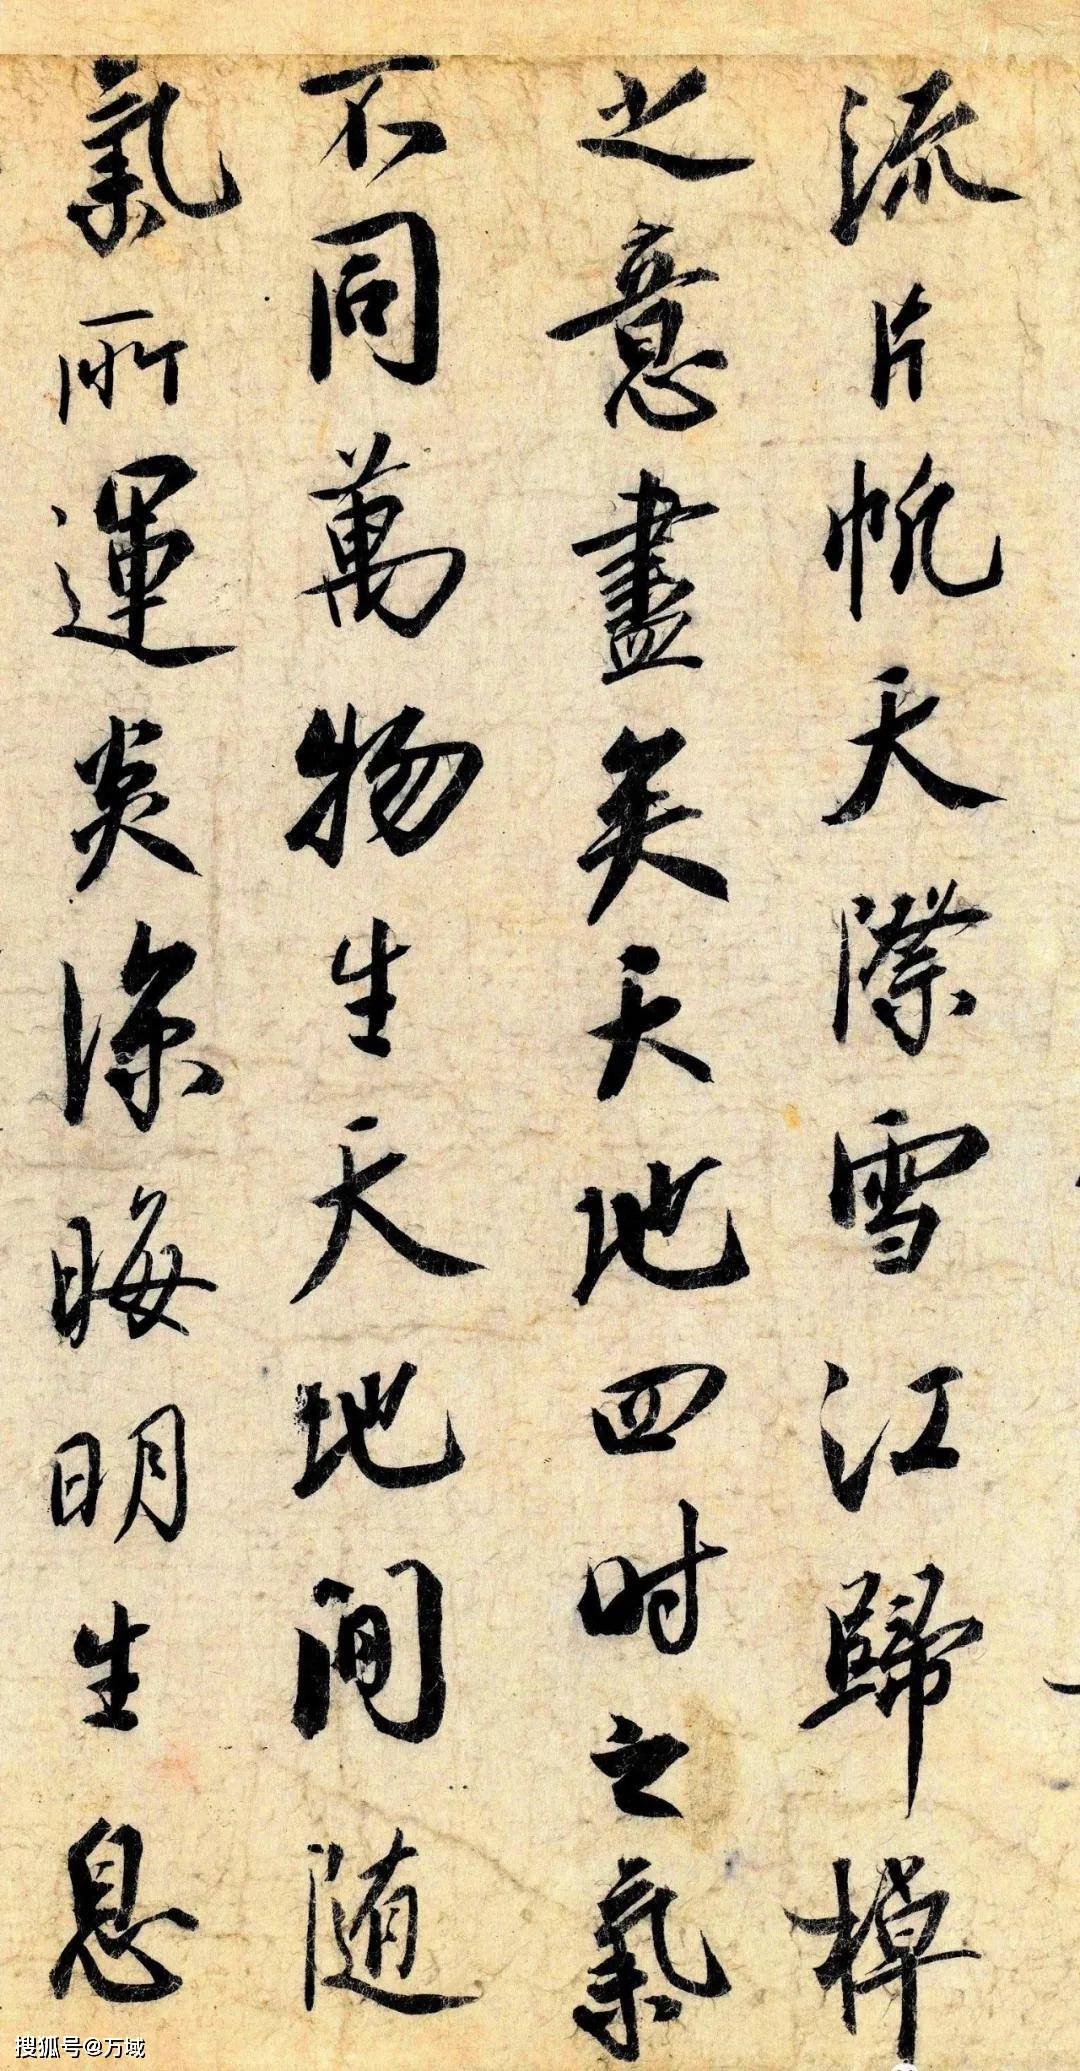 流片帆天際雪江歸棹
之意盡矣天地四时之氣
不同萬物生天地间随
氣所運炎凉晦明生息
搜狐号@万域